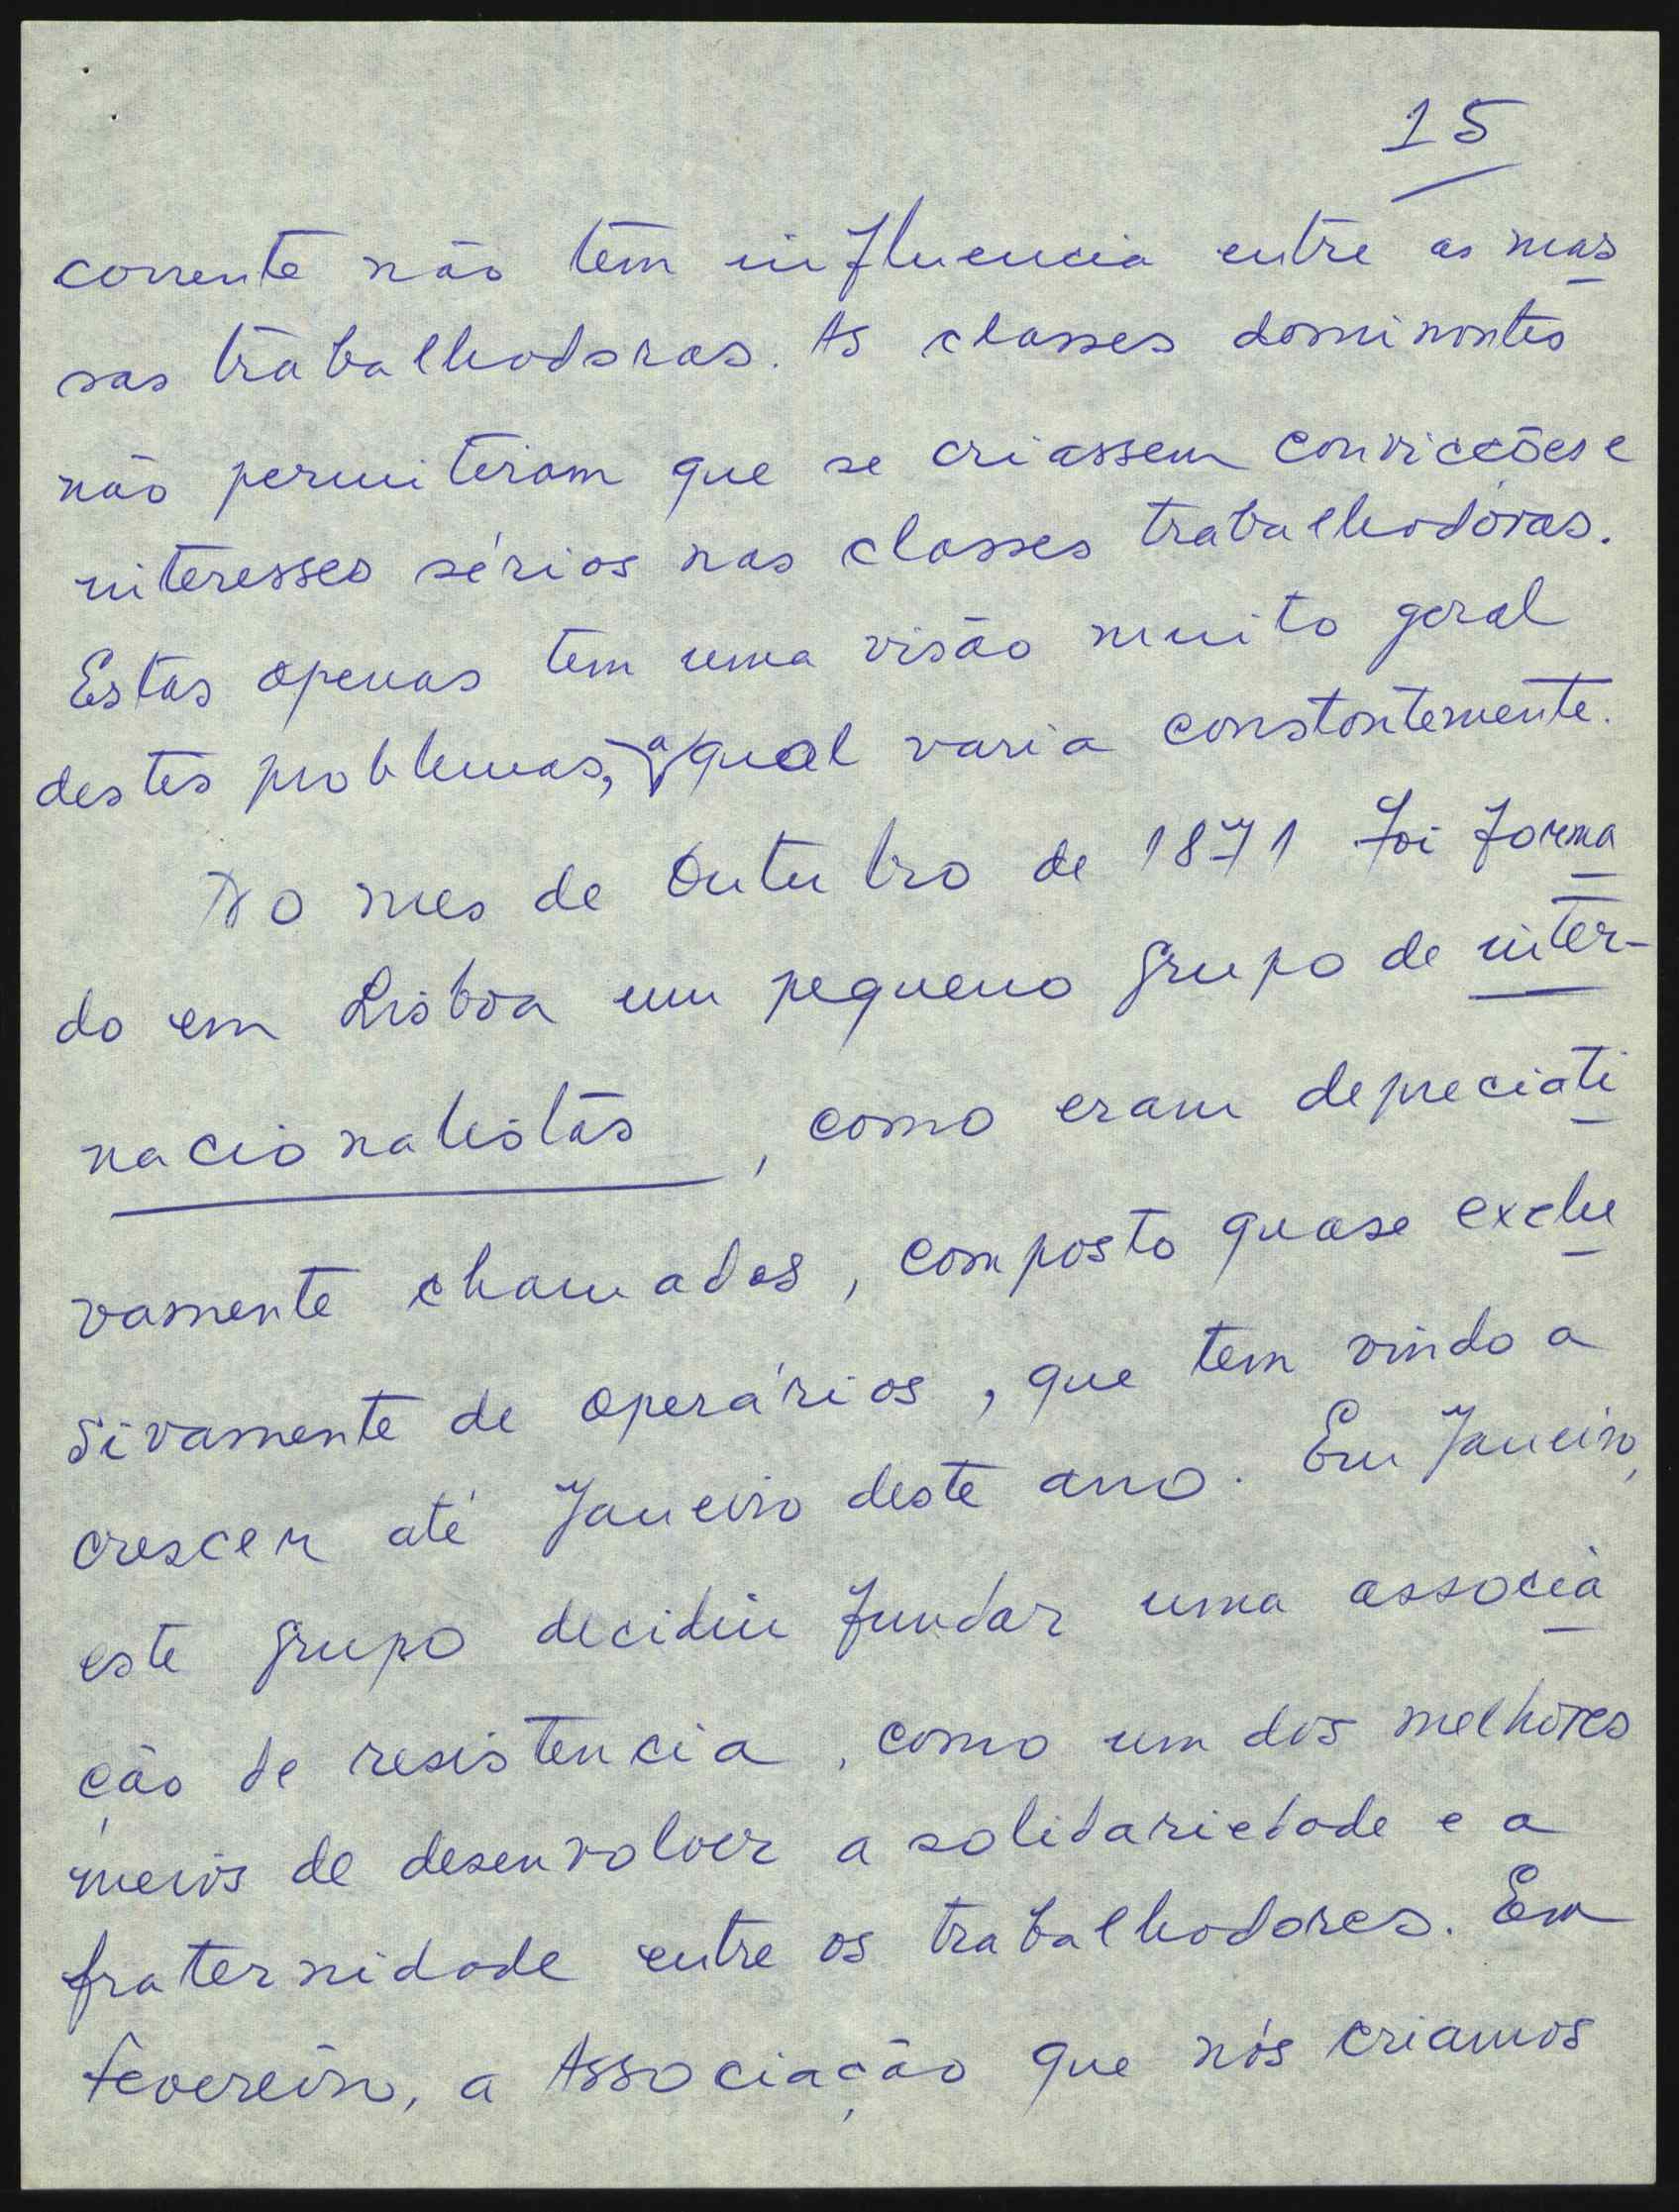 15
corrente não tem influencia entre as mas
sas trabalhadoras. As classes dominantes
não permitiram que se criassem convicções e
interesses sérios nas classes trabalhadoras.
Estas apenas tem uma visão muito geral
destes problemas, a qual varia constantemente.
No mes de Outubro de 1871 foi forma
do em Lisboa um pequeno grupo de inter-
nacionalistas, como eram depreciati
vamente chamados, composto quase exclu
sivamente de operários, que tem vindo a
crescer até Janeiro deste ano. Em Janeiro,
este grupo decidiu fundar uma associa
ção de resistencia, como um dos melhores
meios de desenvolver a solidariedade e a
fraternidade entre os trabalhadores. Em
fevereiro, a Associação que nós criamos